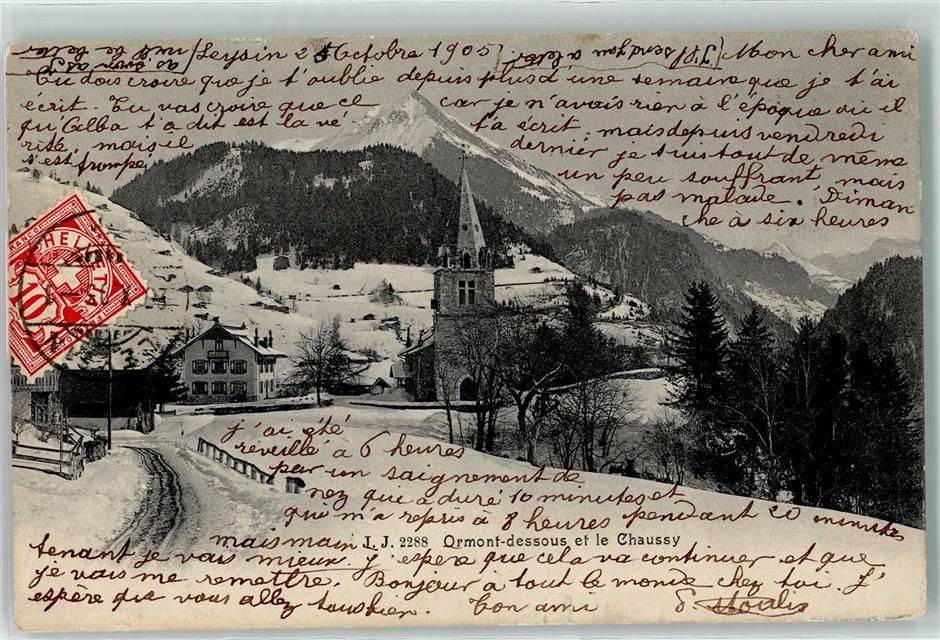 Leysin 25 Octobre 1905
Mon cher ami
Tu dois croire que je t'oublie depuis plus d'une semaine que je t'ai
écrit. Tu vas croire que ce
qu'Alba t'a dit est la vé
rité, mais il
s'est trompé,
car je n'avais rien à l'époque où il
t'a écrit, mais depuis vendredi
dernier je suis tout de même
un peu souffrant, mais
pas malade. Diman
che à six heures
FRANCO
HELVETIA
10
j'ai été
réveillé à 6 heures
par un saignement de
nez que a duré 10 minutes et
qui m'a repris à 8 heures pendant 20 minutes
mais main
I. J. 2288 Ormont-dessous et le Chaussy
tenant je vais mieux. j'espère que cela va continuer et que
je vais me remettre. Bonjour à tout le monde chez toi. J'
espère que vous allez tous bien. Ton ami